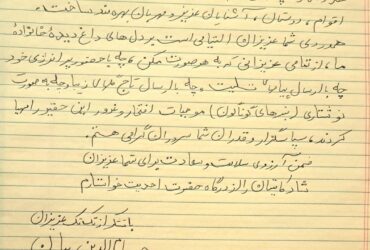 اقوام، دوستان، آشنایان عزیز و مهربان بهره‌مند ساخت.
همدردی شما عزیزان التیامی است بر دل‌های داغ‌دیدهٔ خانوادهٔ
ما، از تمامی عزیزانی که به هر صورت ممکن، چه با حضور پر انرژی خود
چه با ارسال پیام تسلیت، چه با ارسال تاج گل
نوشتاری موجبات افتخار و غرور این حقیر را مهیا
کردند، سپاسگزار و قدردان شما سروران گرامی هستم.
ضمن آرزوی سلامت و سعادت برای شما عزیزان
شادکامیتان را از درگاه حضرت احدیت خواستارم
با تشکر از تک تک عزیزان